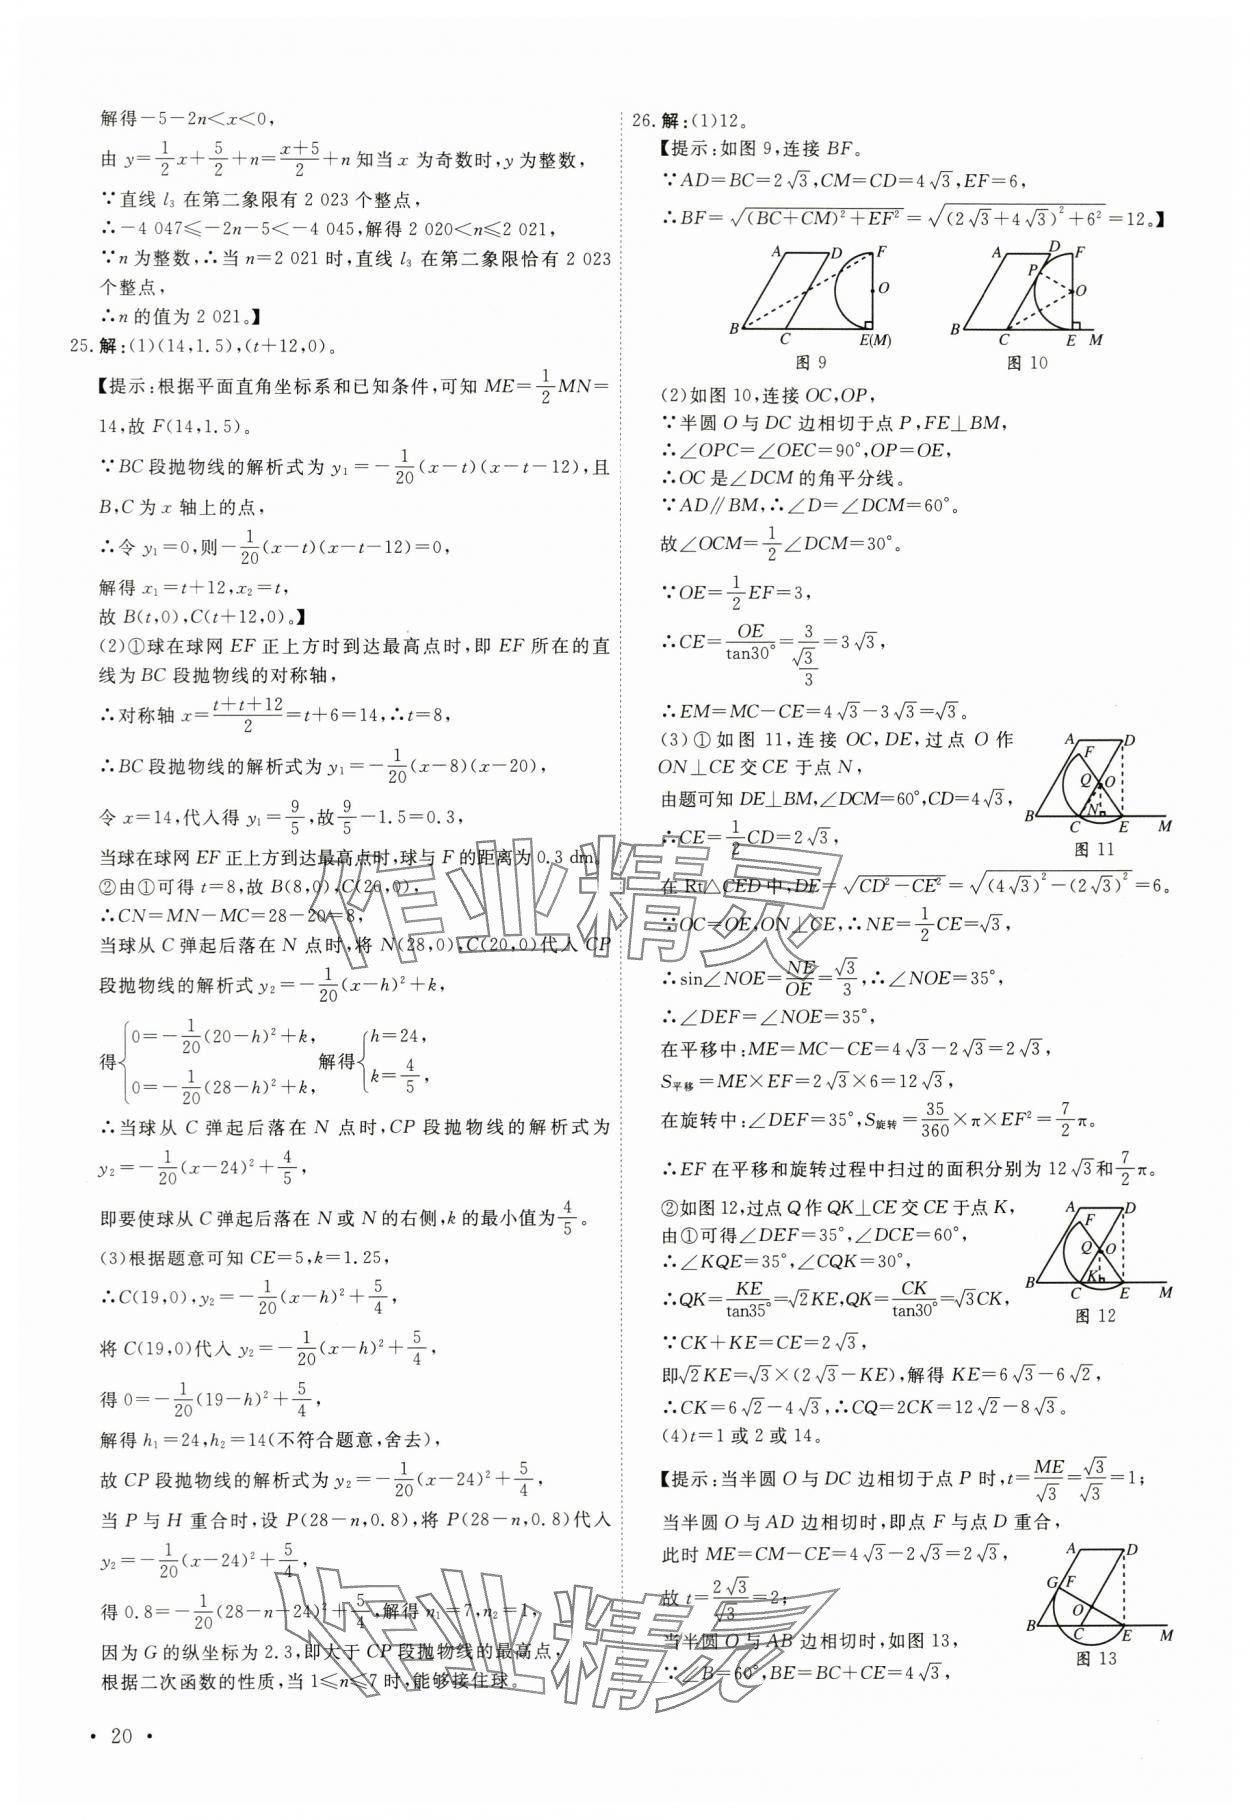 解得-5-2n<x<0,
由 y=1/2x+5/2+n=(x+5)/2+n 知当 x 为奇数时,y 为整数,
∵直线 l₃ 在第二象限有 2 023 个整点,
∴-4 047≤-2n-5<-4 045,解得 2 020<n≤2 021,
∵n 为整数,∴当 n=2 021 时,直线 l₃ 在第二象限恰有 2 023
个整点,
∴n 的值为 2 021。】
25.解:(1)(14,1.5),(t+12,0)。
【提示:根据平面直角坐标系和已知条件,可知 ME=1/2MN=
14,故 F(14,1.5)。
∵BC 段抛物线的解析式为 y₁=-1/20(x-t)(x-t-12),且
B,C 为 x 轴上的点,
∴令 y₁=0,则-1/20(x-t)(x-t-12)=0,
解得 x₁=t+12,x₂=t,
故 B(t,0),C(t+12,0)。】
(2)①球在球网 EF 正上方时到达最高点时,即 EF 所在的直
线为 BC 段抛物线的对称轴,
∴对称轴 x=(t+t+12)/2=t+6=14,∴t=8,
∴BC 段抛物线的解析式为 y₁=-1/20(x-8)(x-20),
令 x=14,代入得 y₁=9/5,故9/5-1.5=0.3,
当球在球网 EF 正上方到达最高点时,球与 F 的距离为 0.3 dm。
②由①可得 t=8,故 B(8,0),C(20,0),
∴CN=MN-MC=28-20=8,
当球从 C 弹起后落在 N 点时,将 N(28,0),C(20,0)代入 CP
段抛物线的解析式 y₂=-1/20(x-h)²+k,
得{0=-1/20(20-h)²+k, 0=-1/20(28-h)²+k, 解得{h=24, k=4/5,
∴当球从 C 弹起后落在 N 点时,CP 段抛物线的解析式为
y₂=-1/20(x-24)²+4/5,
即要使球从 C 弹起后落在 N 或 N 的右侧,k 的最小值为4/5。
(3)根据题意可知 CE=5,k=1.25,
∴C(19,0),y₂=-1/20(x-h)²+5/4,
将 C(19,0)代入 y₂=-1/20(x-h)²+5/4,
得 0=-1/20(19-h)²+5/4,
解得 h₁=24,h₂=14(不符合题意,舍去),
故 CP 段抛物线的解析式为 y₂=-1/20(x-24)²+5/4,
当 P 与 H 重合时,设 P(28-n,0.8),将 P(28-n,0.8)代入
y₂=-1/20(x-24)²+5/4,
得 0.8=-1/20(28-n-24)²+5/4,解得 n₁=7,n₂=1,
因为 G 的纵坐标为 2.3,即大于 CP 段抛物线的最高点,
根据二次函数的性质,当 1≤n≤7 时,能够接住球。
• 20 •
26.解:(1)12。
【提示:如图 9,连接 BF。
∵AD=BC=2√3,CM=CD=4√3,EF=6,
∴BF=√((BC+CM)²+EF²)=√((2√3+4√3)²+6²)=12。】
A D F O B C E(M)
图 9
A D F P O B C E M
图 10
(2)如图 10,连接 OC,OP,
∵半圆 O 与 DC 边相切于点 P,FE⊥BM,
∴∠OPC=∠OEC=90°,OP=OE,
∴OC 是∠DCM 的角平分线。
∵AD∥BM,∴∠D=∠DCM=60°。
故∠OCM=1/2∠DCM=30°。
∵OE=1/2EF=3,
∴CE=OE/tan30°=3/(√3/3)=3√3,
∴EM=MC-CE=4√3-3√3=√3。
(3)①如图 11,连接 OC,DE,过点 O 作
ON⊥CE 交 CE 于点 N,
由题可知 DE⊥BM,∠DCM=60°,CD=4√3,
∴CE=1/2CD=2√3,
A D F Q O B C N E M
图 11
在 Rt△CED 中,DE=√(CD²-CE²)=√((4√3)²-(2√3)²)=6。
∵OC=OE,ON⊥CE,∴NE=1/2CE=√3,
∴sin∠NOE=NE/OE=√3/3,∴∠NOE=35°,
∴∠DEF=∠NOE=35°,
在平移中:ME=MC-CE=4√3-2√3=2√3,
S平移=ME×EF=2√3×6=12√3,
在旋转中:∠DEF=35°,S旋转=35/360×π×EF²=7/2π。
∴EF 在平移和旋转过程中扫过的面积分别为 12√3和7/2π。
②如图 12,过点 Q 作 QK⊥CE 交 CE 于点 K,
由①可得∠DEF=35°,∠DCE=60°,
∴∠KQE=35°,∠CQK=30°,
∴QK=KE/tan35°=√2KE,QK=CK/tan30°=√3CK,
A D F Q O B C K E M
图 12
∵CK+KE=CE=2√3,
即√2KE=√3×(2√3-KE),解得 KE=6√3-6√2,
∴CK=6√2-4√3,∴CQ=2CK=12√2-8√3。
(4)t=1 或 2 或 14。
【提示:当半圆 O 与 DC 边相切于点 P 时,t=ME/√3=√3/√3=1;
当半圆 O 与 AD 边相切时,即点 F 与点 D 重合,
此时 ME=CM-CE=4√3-2√3=2√3,
故 t=2√3/√3=2;
当半圆 O 与 AB 边相切时,如图 13,
∵∠B=60°,BE=BC+CE=4√3,
A D G F O B C E M
图 13
作业精灵
作业精灵